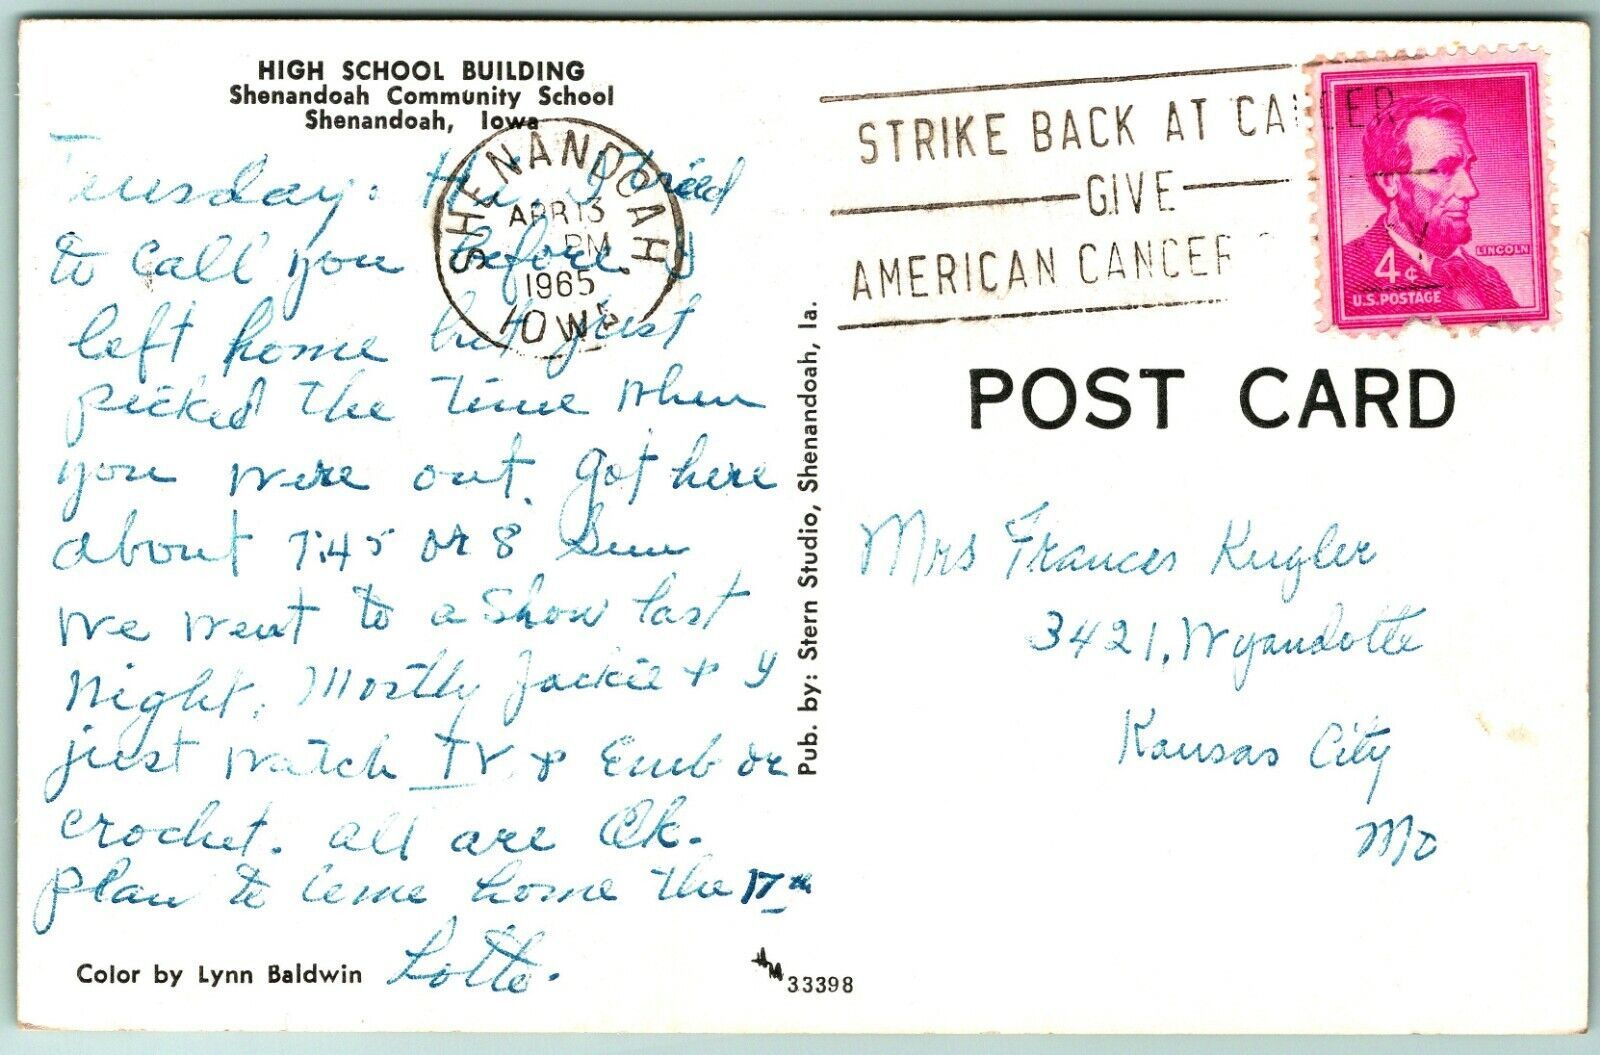 HIGH SCHOOL BUILDING
Shenandoah Community School
Shenandoah, Iowa
Teusday. Hi. I tried
to call you before I
left home but just
picked the time when
you were out. Got here
about 7:45 or 8 Sun
we went to a show last
Night. Mostly Jackie + I
just watch TV. + Emb or
crochet. all are Ok.
plan to come home the 17th
Lotte.
Color by Lynn Baldwin
SHENANDOAH
APR 13
PM
1965
IOWA
Pub. by: Stern Studio, Shenandoah, Ia.
33398
STRIKE BACK AT CANCER
GIVE
AMERICAN CANCER
LINCOLN
4¢
U.S. POSTAGE
POST CARD
Mrs Frances Kugler
3421, Wyandotte
Kansas City
Mo